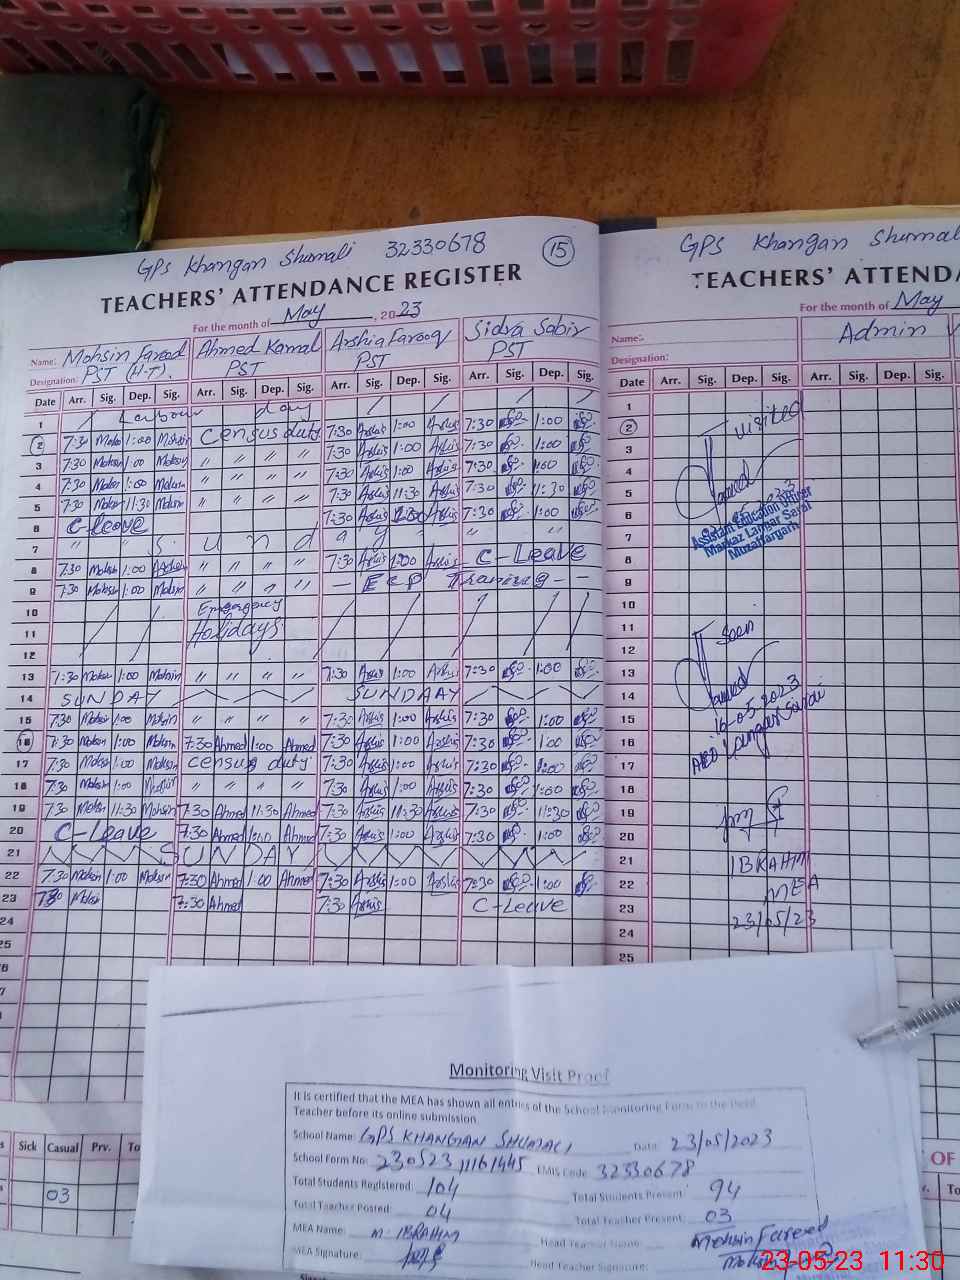 GPS Khangan Shumali 32330678 15
TEACHERS' ATTENDANCE REGISTER
For the month of May, 2023
Name: Mohsin Fareed Ahmed Kamal Arshia Farooq Sidra Sabir
Designation: PST (H.T). PST PST PST
Date Arr. Sig. Dep. Sig. Arr. Sig. Dep. Sig. Arr. Sig. Dep. Sig. Arr. Sig. Dep. Sig.
1 Labour day
2 7:30 Mohsin 1:00 Mohsin Census duty 7:30 Arshia 1:00 Arshia 7:30 1:00
3 7:30 Mohsin 1:00 Mohsin " " " " 7:30 Arshia 1:00 Arshia 7:30 1:00
4 7:30 Mohsin 1:00 Mohsin " " " " 7:30 Arshia 1:00 Arshia 7:30 1:00
5 7:30 Mohsin 11:30 Mohsin " " " " 7:30 Arshia 11:30 Arshia 7:30 11:30
6 C-leave 7:30 Arshia Arshia 7:30 1:00
7 " S u n d a y " "
8 7:30 Mohsin 1:00 " " " " 7:30 Arshia 1:00 Arshia C-Leave
9 7:30 Mohsin 1:00 Mohsin " " " " - ECP Training - -
10 Emergency
11 Holidays
12
13 7:30 Mohsin 1:00 Mohsin " " 7:30 Arshia 1:00 Arshia 7:30 1:00
14 SUNDAY SUNDAAY
15 7:30 Mohsin 1:00 Mohsin " " " " 7:30 Arshia 1:00 Arshia 7:30 1:00
16 7:30 Mohsin 1:00 Mohsin 7:30 Ahmed 1:00 Ahmed 7:30 Arshia 1:00 Arshia 7:30 1:00
17 7:30 Mohsin 1:00 Mohsin Census duty 7:30 Arshia 1:00 Arshia 7:30 1:00
18 7:30 Mohsin 1:00 Mohsin " " " " 7:30 Arshia 1:00 Arshia 7:30 1:00
19 7:30 Mohsin 11:30 Mohsin 7:30 Ahmed 11:30 Ahmed 7:30 Arshia 11:30 Arshia 7:30 11:30
20 C-Leave 7:30 Ahmed 1:00 Ahmed 7:30 Arshia 1:00 Arshia 7:30 1:00
21 SUNDAY
22 7:30 Mohsin 1:00 Mohsin 7:30 Ahmed 1:00 Ahmed 7:30 Arshia 1:00 Arshia 7:30 1:00
23 7:30 Mohsin 7:30 Ahmed 7:30 Arshia C-Leave
24
25
Sick Casual Prv.
03
GPS Khangan Shumali
TEACHERS' ATTENDA
For the month of May
Name: Admin
Designation:
Date Arr. Sig. Dep. Sig. Arr. Sig. Dep. Sig.
1
2 visited
3
4
5
6 Assistant Education Officer
7 Markaz Langar Sarai
8 Muzaffargarh
9
10
11 Seen
12
13
14
15 16-05-2023
16 AEO Langar Sarai
17
18
19
20
21 IBRAHIM
22 MEA
23 23/05/23
24
25
OF
Monitoring Visit Proof
It is certified that the MEA has shown all entries of the School Monitoring Form to the Head
Teacher before its online submission
School Name: GPS KHANGAN SHUMALI Date: 23/05/2023
School Form No: EMIS Code: 32330678
Total Students Registered: 104 Total Students Present: 94
Total Teacher Posted: 04 Total Teacher Present: 03
MEA Name: M. IBRAHIM Head Teacher Name: Mohsin Fareed
MEA Signature: Head Teacher Signature: Mohsin
23-05-23 11:30